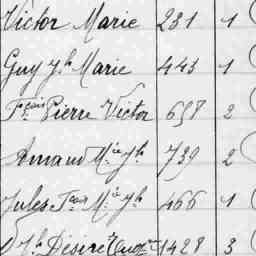 Victor Marie 231 1
Guy Jh Marie 443 1
Fçois Pierre Victor 697 2
Armand Mie Jh 739 2
Jules Fçois Mie Jh 466 1
Jh Désiré 1428 3